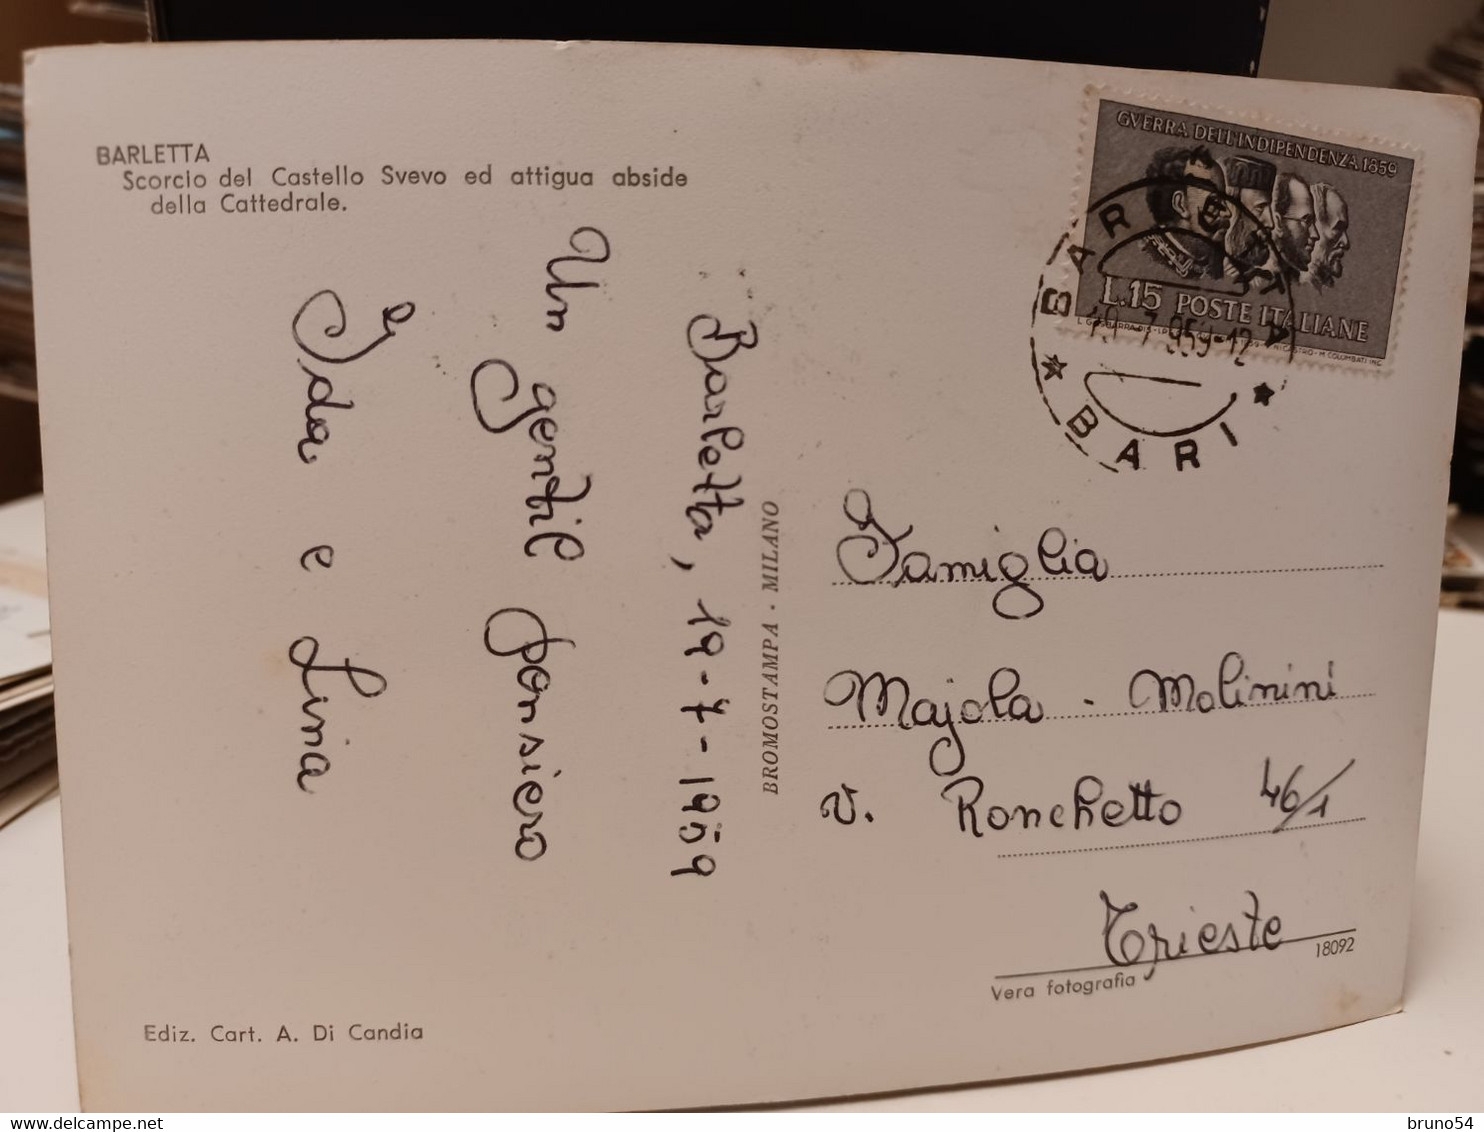 BARLETTA
Scorcio del Castello Svevo ed attigua abside
della Cattedrale.
GVERRA DELL'INDIPENDENZA 1859
L.15 POSTE ITALIANE
BARLETTA
19-7-959-12
* BARI *
Barletta, 19-7-1959
Un gentil pensiero
Ida e Lina
BROMOSTAMPA - MILANO
Famiglia
Majola - Molinini
v. Ronchetto 46/1
Trieste
18092
Vera fotografia
Ediz. Cart. A. Di Candia
www.delcampe.net
bruno54